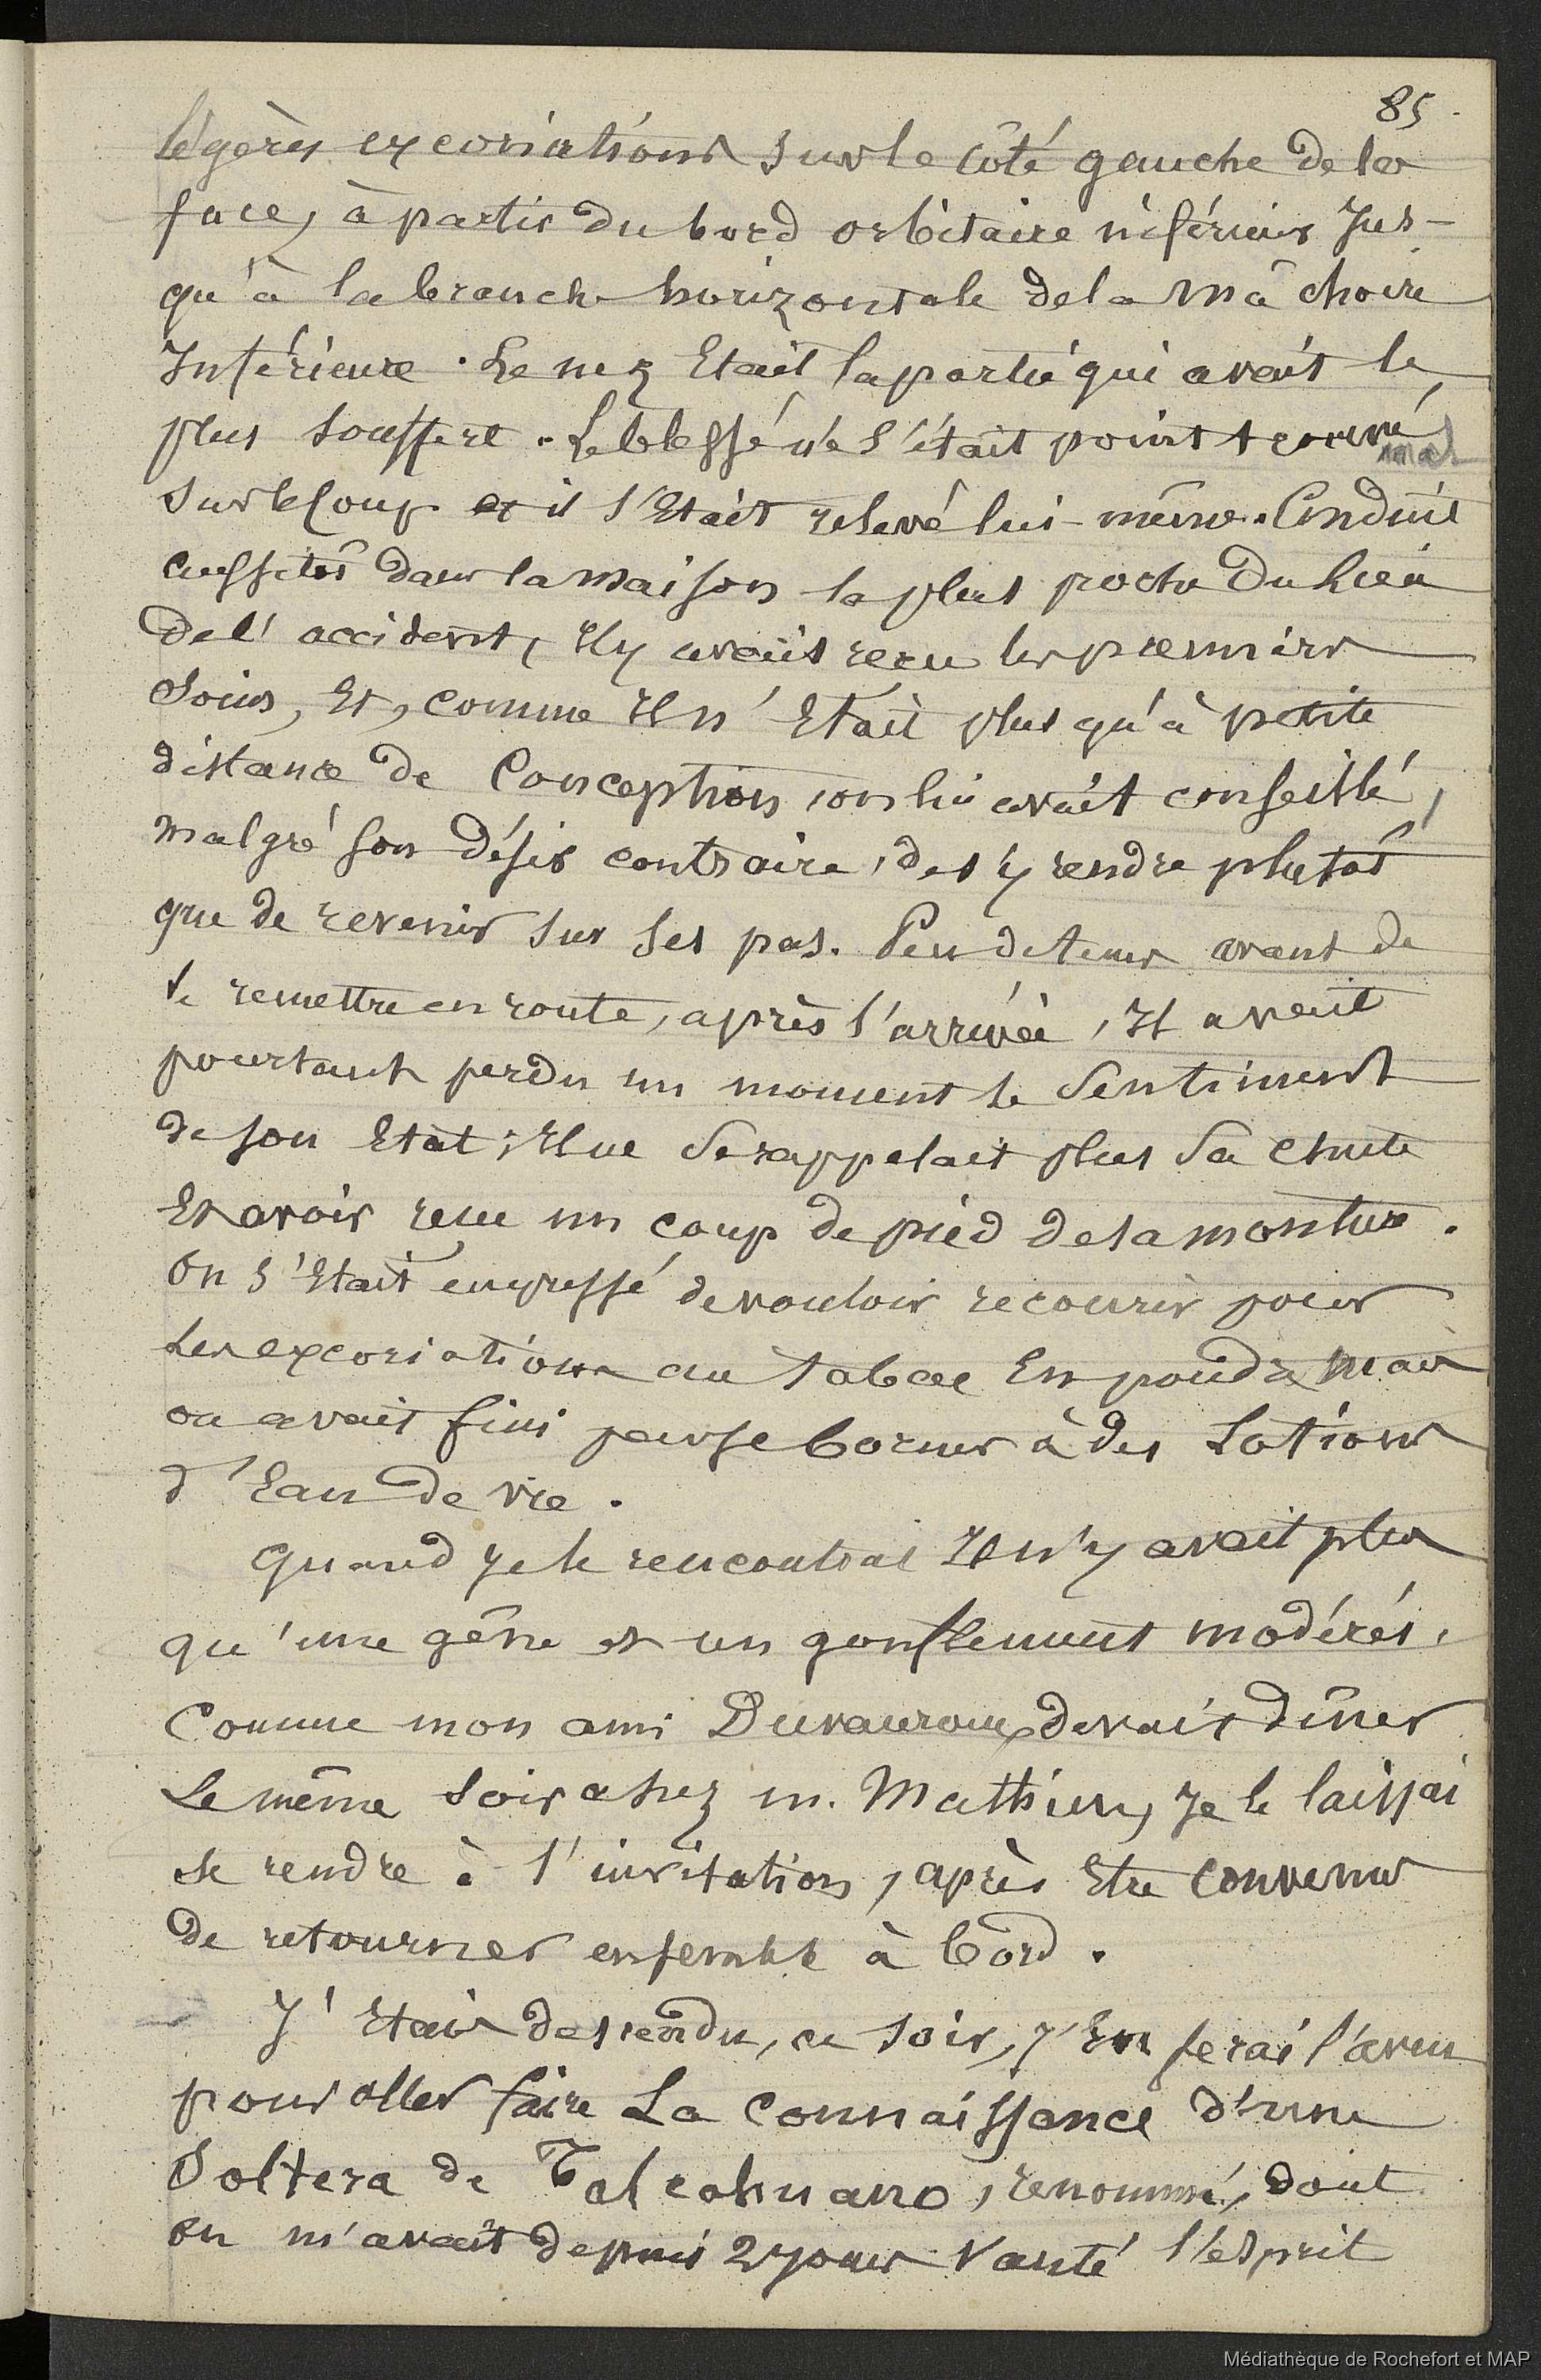 85
légères excoriations sur le côté gauche de la
face, à partir du bord orbitaire inférieur Jus-
qu'à la branche horizontale de la mâchoire
Inférieure. Le nez Etait la partie qui avait le
plus souffert. Le blessé ne s'était point trouvé
mal
sur le coup et il s'Etait relevé lui-même. Conduit
aussitôt dans la maison la plus proche du lieu
de l'accident, Il y avait reçu les premiers
soins, Et, comme Il n'Etait plus qu'à petite
distance de Conception, on lui avait conseillé,
malgré son désir contraire, de s'y rendre plutôt
que de revenir sur ses pas. Peu de tems avant de
se remettre en route, après l'arrivée, Il avait
pourtant perdu un moment le sentiment
de son Etat; Il ne se rappelait plus sa chute
Et avoir reçu un coup de pied de sa monture.
On s'Etait empressé de vouloir recourir pour
les excoriations au tabac En poudre mais
on avait fini par se borner à des Lotions
d'Eau de vie.
Quand Je le rencontrai Il n'y avait plus
qu'une gêne et un gonflement modérés.
Comme mon ami Duvauroux devait dîner
Le même soir chez m. Mathieu, Je le laissai
se rendre à l'invitation, après Etre convenus
de retourner ensemble à bord.
J'Etais descendu, ce soir, J'En ferai l'aveu
pour aller faire La connaissance d'une
Soltera de Talcahuano, renommé, dont
on m'avait depuis 2 jours vanté l'esprit
Médiathèque de Rochefort et MAP